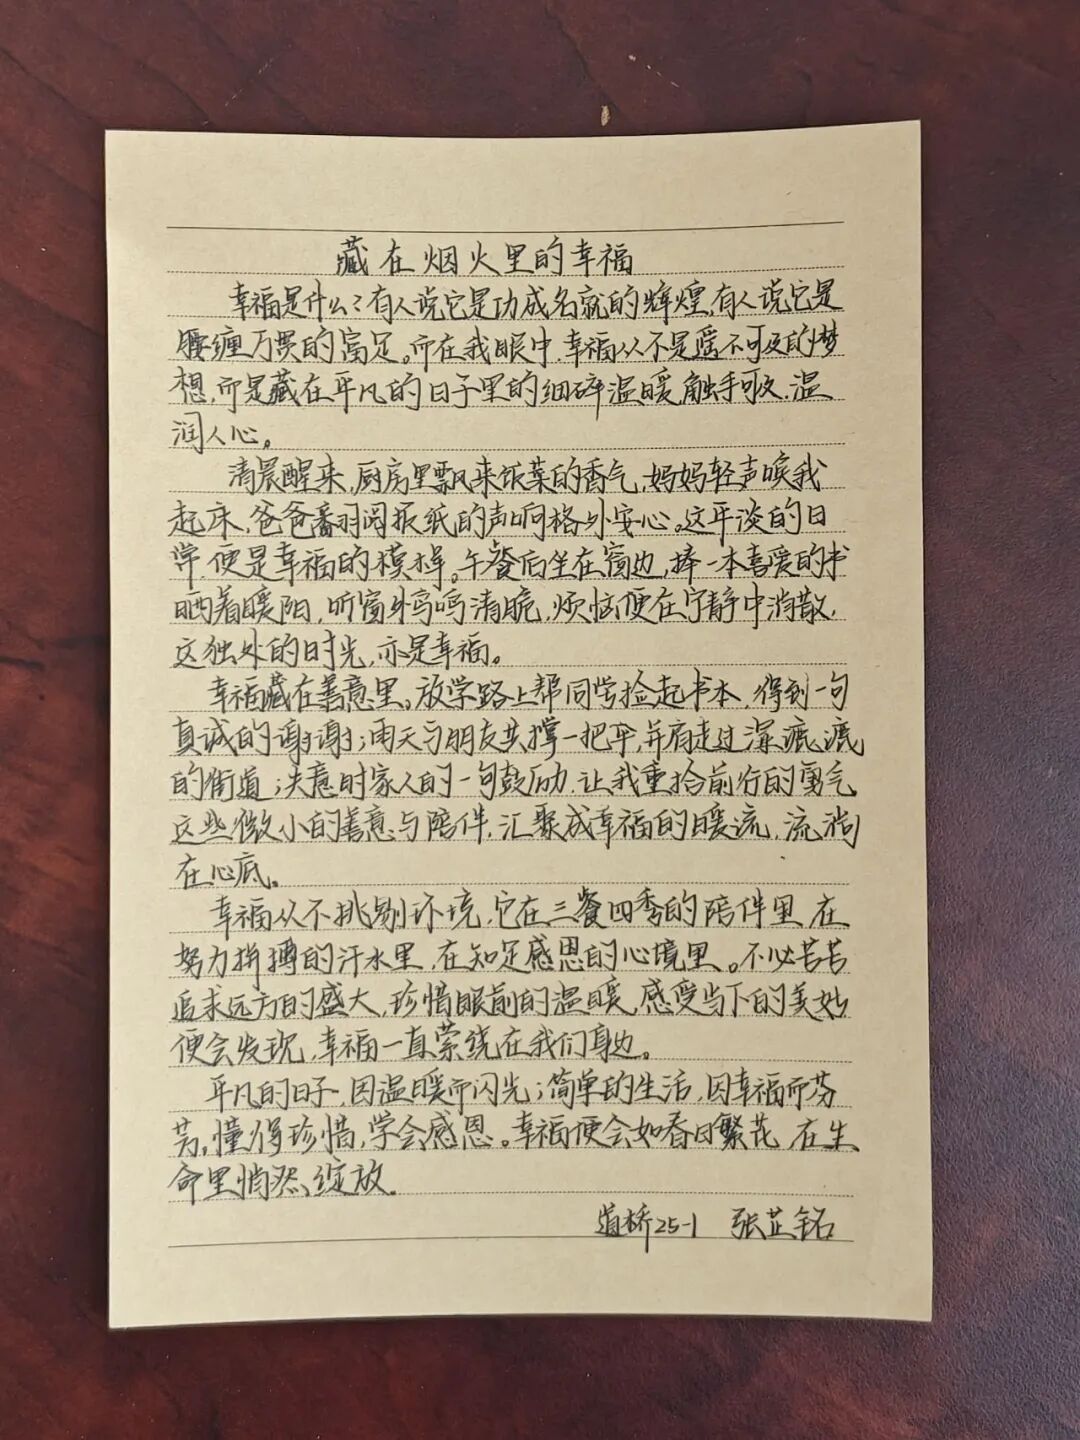 藏在烟火里的幸福
幸福是什么?有人说它是功成名就的辉煌,有人说它是
腰缠万贯的富足。而在我眼中,幸福从不是遥不可及的梦
想,而是藏在平凡的日子里的细碎温暖,触手可及,温
润人心。
清晨醒来,厨房里飘来饭菜的香气,妈妈轻声唤我
起床,爸爸翻阅报纸的声响格外安心。这平淡的日
常,便是幸福的模样。午餐后坐在窗边,捧一本喜爱的书
晒着暖阳,听窗外鸟鸣清脆,烦恼便在宁静中消散,
这独处的时光,亦是幸福。
幸福藏在善意里。放学路上帮同学捡起书本,得到一句
真诚的谢谢;雨天与朋友共撑一把伞,并肩走过湿漉漉
的街道;失意时家人的一句鼓励,让我重拾前行的勇气
这些微小的善意与陪伴,汇聚成幸福的暖流,流淌
在心底。
幸福从不挑剔环境,它在三餐四季的陪伴里,在
努力拼搏的汗水里,在知足感恩的心境里。不必苦苦
追求远方的盛大,珍惜眼前的温暖,感受当下的美妙
便会发现,幸福一直萦绕在我们身边。
平凡的日子,因温暖而闪光;简单的生活,因幸福而芬
芳。懂得珍惜,学会感恩。幸福便会如春日繁花,在生
命里悄然绽放。
道桥25-1 张芷铭